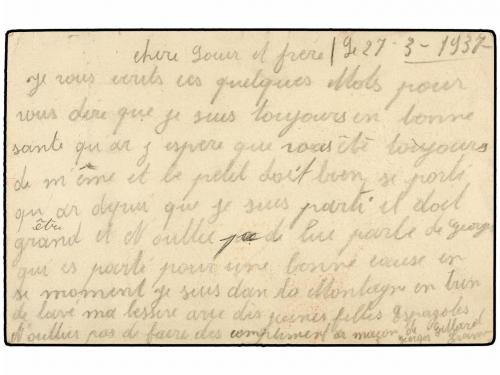 chère Soeur et frère | Le 27-3-1937
Je vous ecrits ces quelques Mots pour
vous dire que je suis toujours en bonne
santé qu ar j espere que vous été toujours
de m ême et le petit doit bien se porti
qu ar depui que je suis parti il doit
être
grand et N oullie pa de lui parle de George
qui es parti pour une bonne cause en
se moment je suis dan la Montagne en trin
de lave ma lessive avec des jeunes filles Espagoles
N oullier pas de faire des compliment a maçon de
Georges